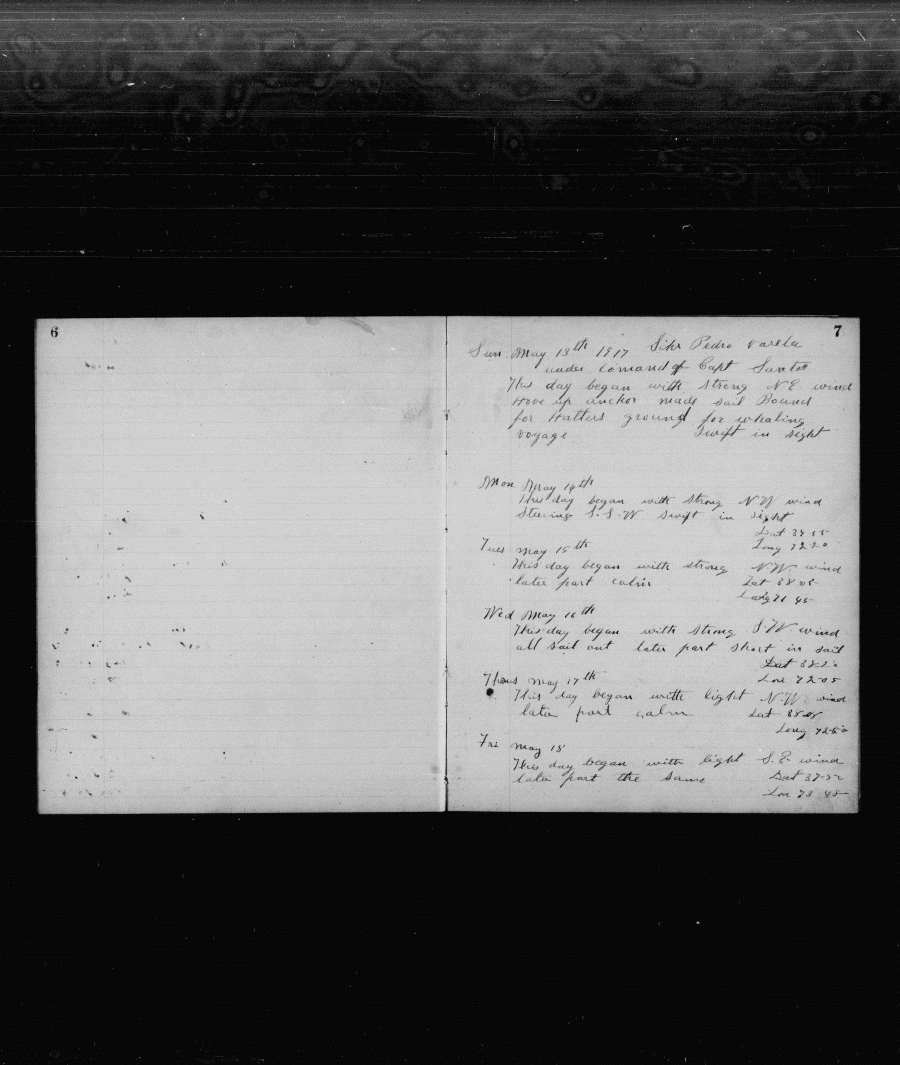 6
7
Sun. May 13th 1917 Schr Pedro Varela
under comand of Capt Santos
This day began with strong N.E. wind
Hove up anchor made sail Bound
for Hatters ground for whaling
voyage Swift in sight
Mon May 14th
This day began with strong N W wind
Steering S.S.W Swift in sight
Lat 39
Long 72-20
Tues May 15th
This day began with strong N.W. wind
later part calm Lat 38 05
Long 71 45
Wed May 16th
This day began with strong S.W. wind
all sail out later part short in sail
Lat 38-20
Lon 72-05
Thurs May 17th
This day began with light N.W. wind
later part calm Lat 38-05
Long 72-50
Fri May 18
This day began with light S.E. wind
later part the same Lat 37-50
Lon 73 45